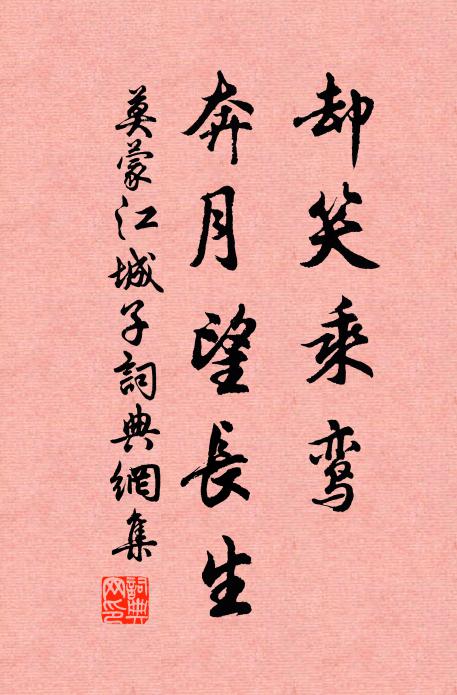 却笑乘鸾
奔月望長生
莫蒙江城子詞典網集
詞典網印